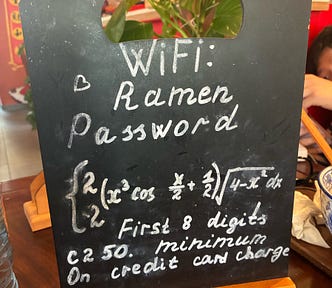 WiFi:
Ramen
Password
∫2 -2 (x³ cos x/2 + 1/2)√4-x² dx
First 8 digits
c2 50. minimum
On credit card charge